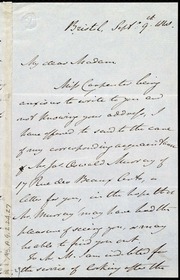 Bristol, Sept. 9th 1840.
My dear Madam
Miss Carpenter being
anxious to write to you and
not knowing your address, I
have offered to send to the care
of my corresponding acquaintance
Mr
Murray of
17 Rue des Beaux Arts, a
letter for you, in the hope that
Mr Murray may have had the
pleasure of seeing you, or may
be able to find you out.
To Mr
I am indebted for
the service of looking after the